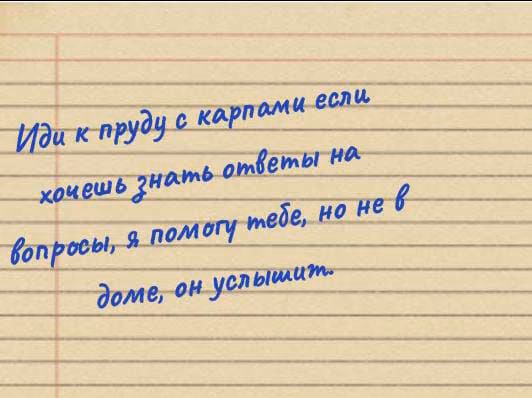 Иди к пруду с карпами если
хочешь знать ответы на
вопросы, я помогу тебе, но не в
доме, он услышит.